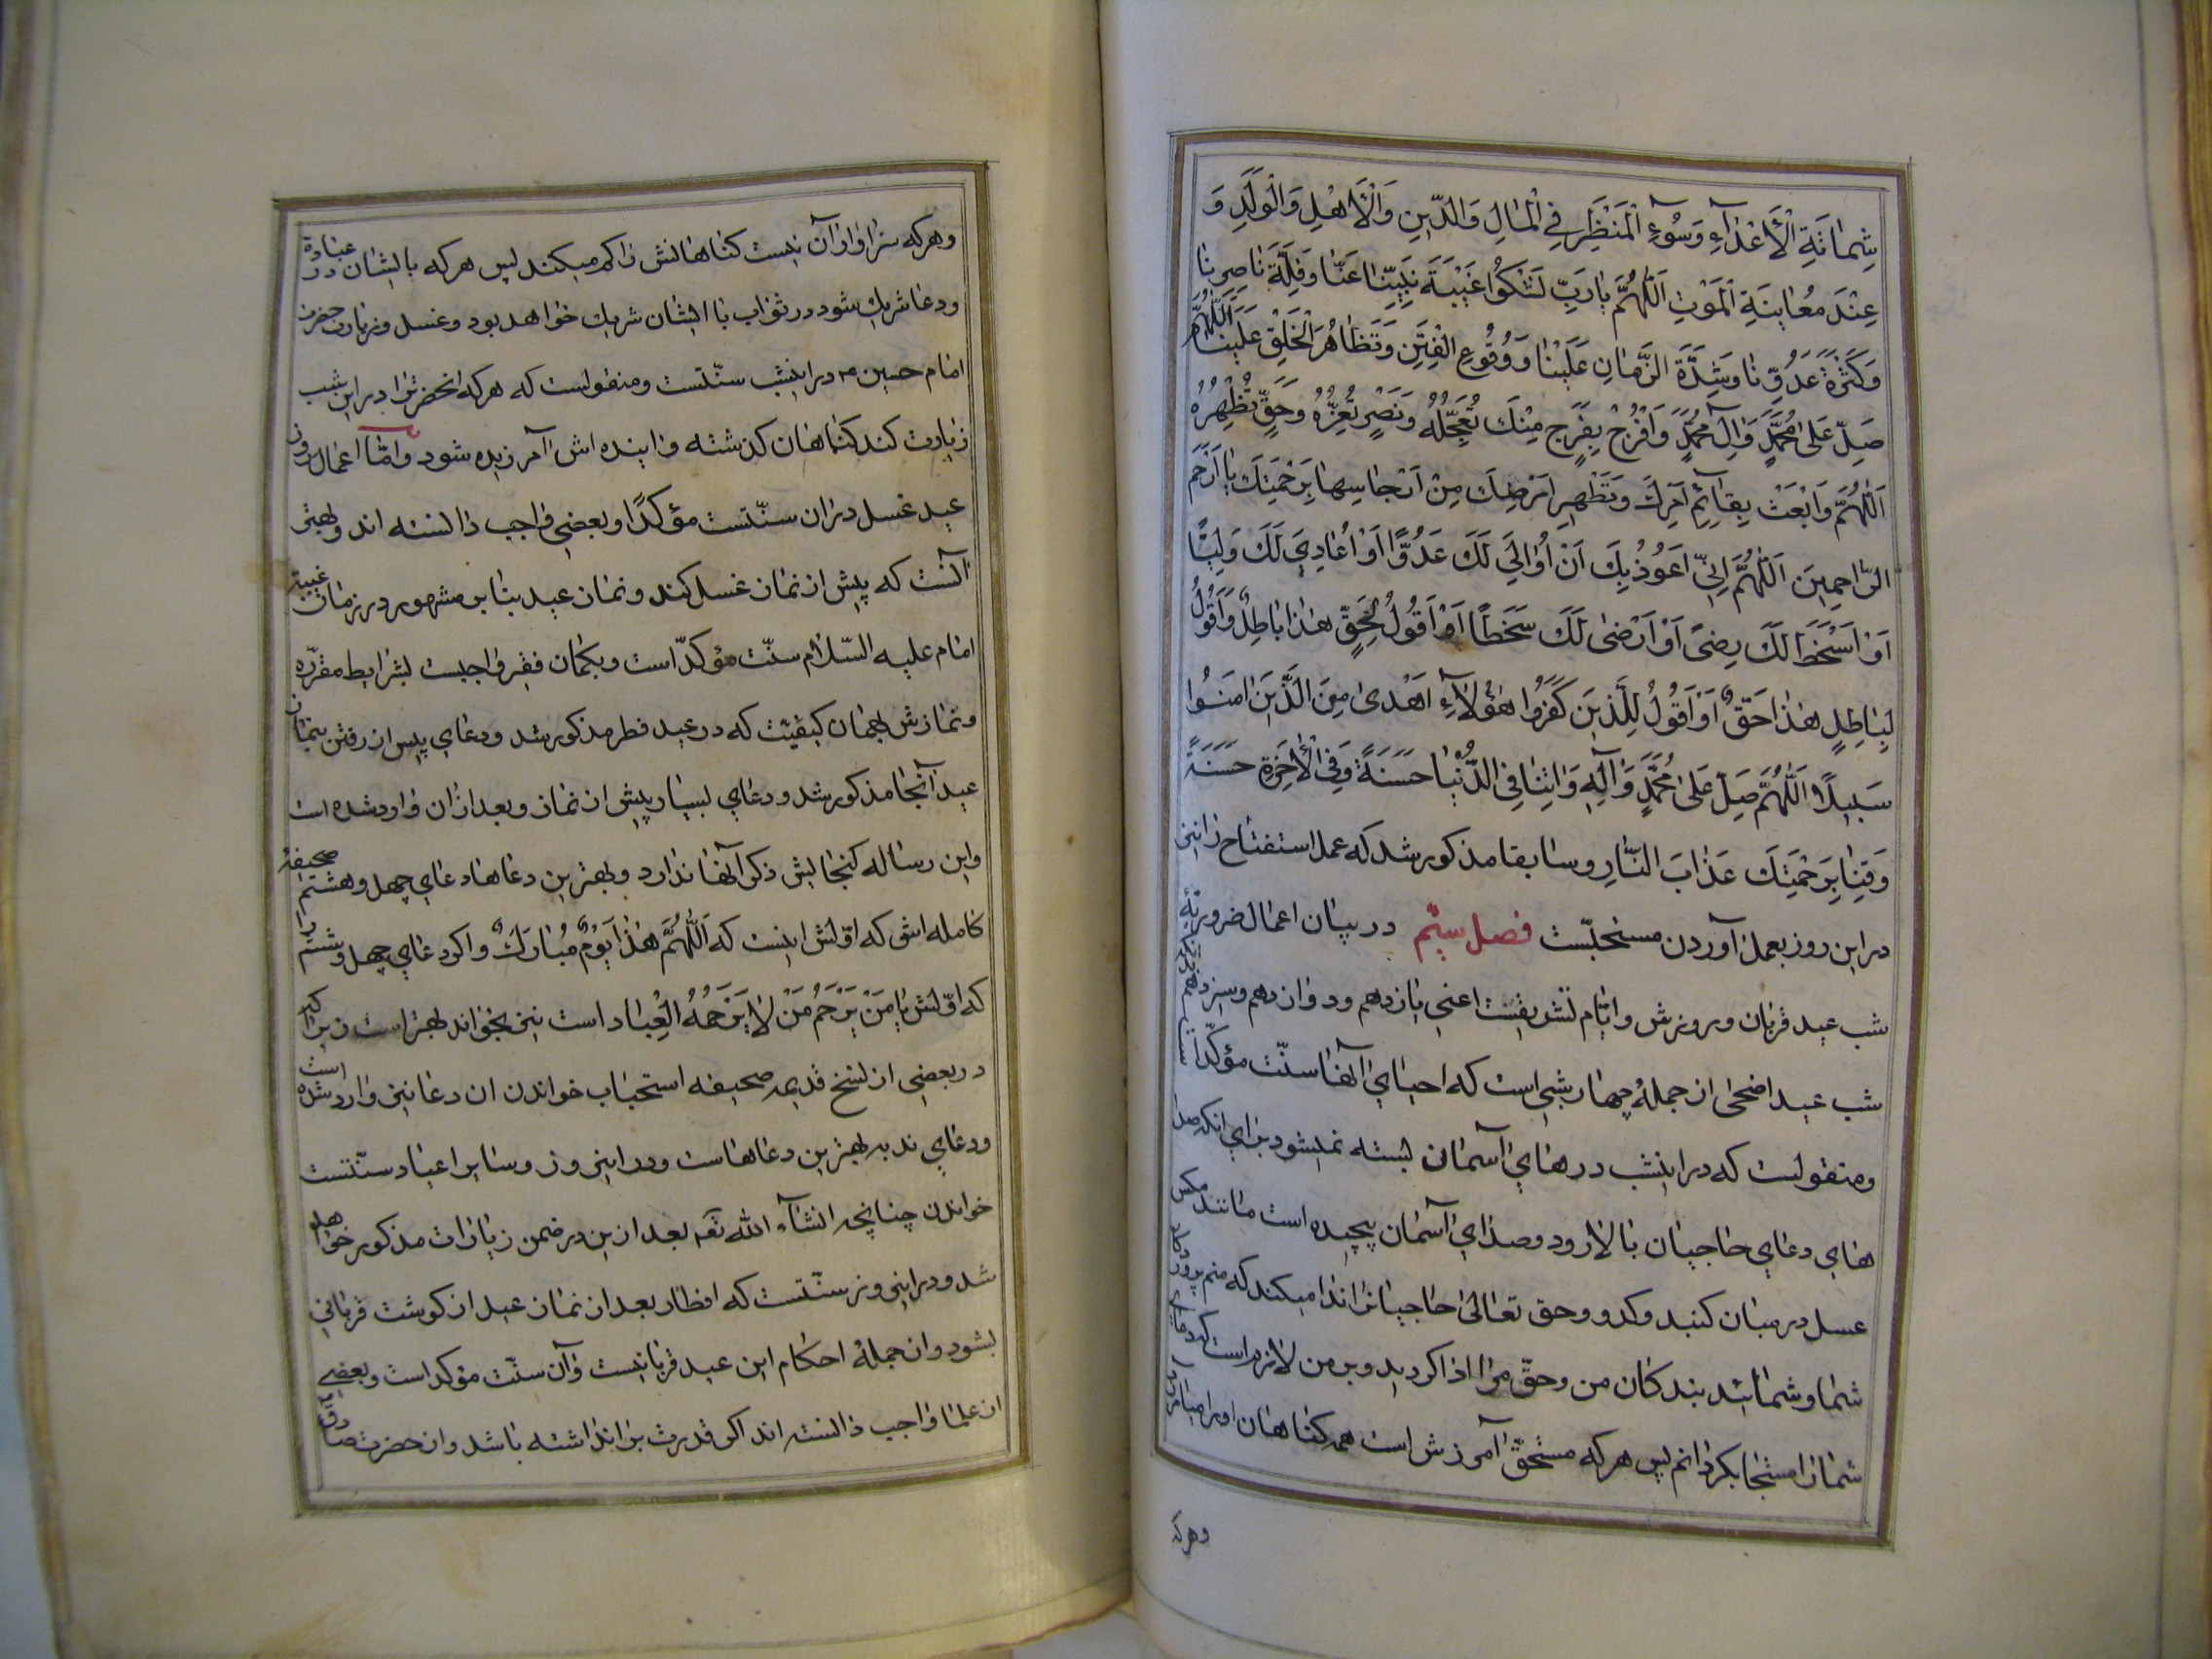 شِمٰاتَةِ الْأَعْدٰآءِ وَسُوٓءِ الْمَنْظَرِ فِي الْمٰالِ وَالدّٖينِ وَالْأَهْلِ وَالْوَلَدِ وَ
عِنْدَ مُعٰايَنَةِ الْمَوْتِ اَللّٰهُمَّ يٰارَبِّ نَشْكُوا غَيْبَةَ نَبِيِّنٰا عَنّٰا وَقِلَّةَ نٰاصِرِنٰا
وَكَثْرَةَ عَدُوِّنٰا وَشِدَّةَ الزَّمٰانِ عَلَيْنٰا وَوُقُوعِ الْفِتَنِ وَتَظٰاهُرَ الْخَلْقِ عَلَيْنٰا اَللّٰهُمَّ
صَلِّ عَلىٰ مُحَمَّدٍ وَاٰلِ مُحَمَّدٍ وَافْرُجْ بِفَرَجٍ مِنْكَ تُعَجِّلُهُ وَنَصْرٍ تُعِزُّهُ وَحَقٍّ تُظْهِرُهُ
اَللّٰهُمَّ وَابْعَثْ بِقٰآئِمِ اَمْرِكَ وَتَطْهِيرِ اَرْضِكَ مِنْ اَنْجٰاسِهٰا بِرَحْمَتِكَ يٰا اَرْحَمَ
الرّٰاحِمِينَ اَللّٰهُمَّ اِنّٖي اَعُوذُ بِكَ اَنْ اُوٰالِيَ لَكَ عَدُوًّا اَوْ اُعٰادِيَ لَكَ وَلِيًّا
اَوْ اَسْخَطَ لَكَ رِضىً اَوْ اَرْضىٰ لَكَ سَخَطًا اَوْ اَقُولُ لِحَقٍّ هٰذٰا بٰاطِلٌ وَاَقُولُ
لِبٰاطِلٍ هٰذٰا حَقٌّ اَوْ اَقُولُ لِلَّذٖينَ كَفَرُوا هٰؤُلٰآءِ اَهْدىٰ مِنَ الَّذٖينَ اٰمَنُوا
سَبٖيلًا اَللّٰهُمَّ صَلِّ عَلىٰ مُحَمَّدٍ وَاٰلِهِ وَاٰتِنٰا فِي الدُّنْيٰا حَسَنَةً وَفِي الْاٰخِرَةِ حَسَنَةً
وَقِنٰا بِرَحْمَتِكَ عَذٰابَ النّٰارِ وسابقا مذکور شد که عمل استفتاح را نیز
در این روز بعمل آوردن مستحبّست فصل سیّم در بیان اعمال ضروریّهٔ
شب عید قربان و روزش و ایّام تشریقست اعنی یازدهم و دوازدهم و سیزدهم
شب عید اضحی از جملهٔ چهار شبی است که احیای آنها سنّت مؤکّد است
و منقولست که در اینشب درهای آسمان بسته نمیشود برای آنکه صدا
های دعای حاجیان بالا رود و صدای آسمان پیچیده است مانند مکس
عسل در میان کنبد و کدو و حق تعالی حاجیانرا ندا میکند که منم پروردکار
شما و شمائید بندکان من و حقّ مرا ادا کردید و بر من لازم است که دعای
شمارا مستجاب کردانم پس هر که مستحقّ آمرزش است همه کناهان او را میامرزد
وهرکه
وهر که سزاوار آن نیست کناهانش را کم میکند پس هر که با ایشان در عبادة
و دعا شریك شود در ثواب با ایشان شریك خواهد بود و غسل و زیارت حضرت
امام حسین ع در اینشب سنّتست و منقولست که هر که انحضرترا در این شب
زیارت کند کناهان کذشته و اینده اش آمرزیده شود و امّا اعمال روز
عید غسل در آن سنّتست مؤکدًا و بعضی واجب دانسته اند و بهتر
آنست که پیش از نماز غسل کند و نماز عید بنا بر مشهور در زمان غیبت
امام علیه السّلام سنّت مؤکدّ است و بکمان فقیر واجبست بشرایط مقرّره
و نمازش بهمان کیفیّت که در عید فطر مذکور شد و دعای پیس از رفتن بنماز
عید آنجا مذکور شد و دعای بسیار پیش از نماز و بعد ازان وارد شده است
و این رساله کنجایش ذکر آنها ندارد و بهترین دعاها دعای چهل و هشتم صحیفهٔ
کامله اش که اوّلش اینست که اَللّٰهُمَّ هٰذٰا يَوْمٌ مُبٰارَكٌ و اکر دعای چهل و ششم را
که اوّلش يٰا مَنْ يَرْحَمُ مَنْ لٰا يَرْحَمُهُ الْعِبٰاد است نیز بخواند بهتر است زیرا که
در بعضی از نسخ قدیمه صحیفه استحباب خواندن ان دعا نیز وارد شده است
و دعای ندبه بهترین دعاهاست و در اینروز و سایر اعیاد سنّتست
خواندن چنانچه انشآء الله تعٰ بعد ازین در ضمن زیارات مذکور خواهد
شد و در اینروز سنّتست که افطار بعد از نماز عید از کوشت قربانی
بشود و از جملهٔ احکام این عید قربانیست و آن سنّت مؤکد است و بعضی
از علما واجب دانسته اند اکر قدرت بر آن داشته باشد و از حضرت صادق